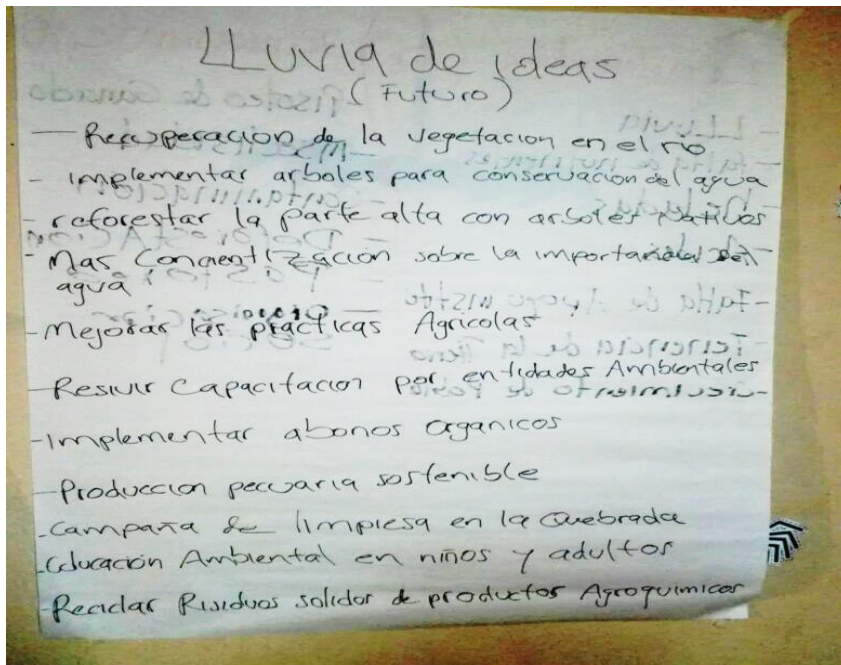 LLUVIA de ideas
(Futuro)
- Recuperacion de la vegetacion en el rio
- implementar arboles para conservacion del agua
- reforestar la parte alta con arboles nativos
- Mas Concientización sobre la importancia del
agua
- Mejorar las practicas Agricolas
- Resivir Capacitacion por entidades Ambientales
- Implementar abonos organicos
- Produccion pecuaria sostenible
- Campaña de limpiesa en la Quebrada
- Educación Ambiental en niños y adultos
- Reciclar Risiduos solidos de productos Agroquimicos